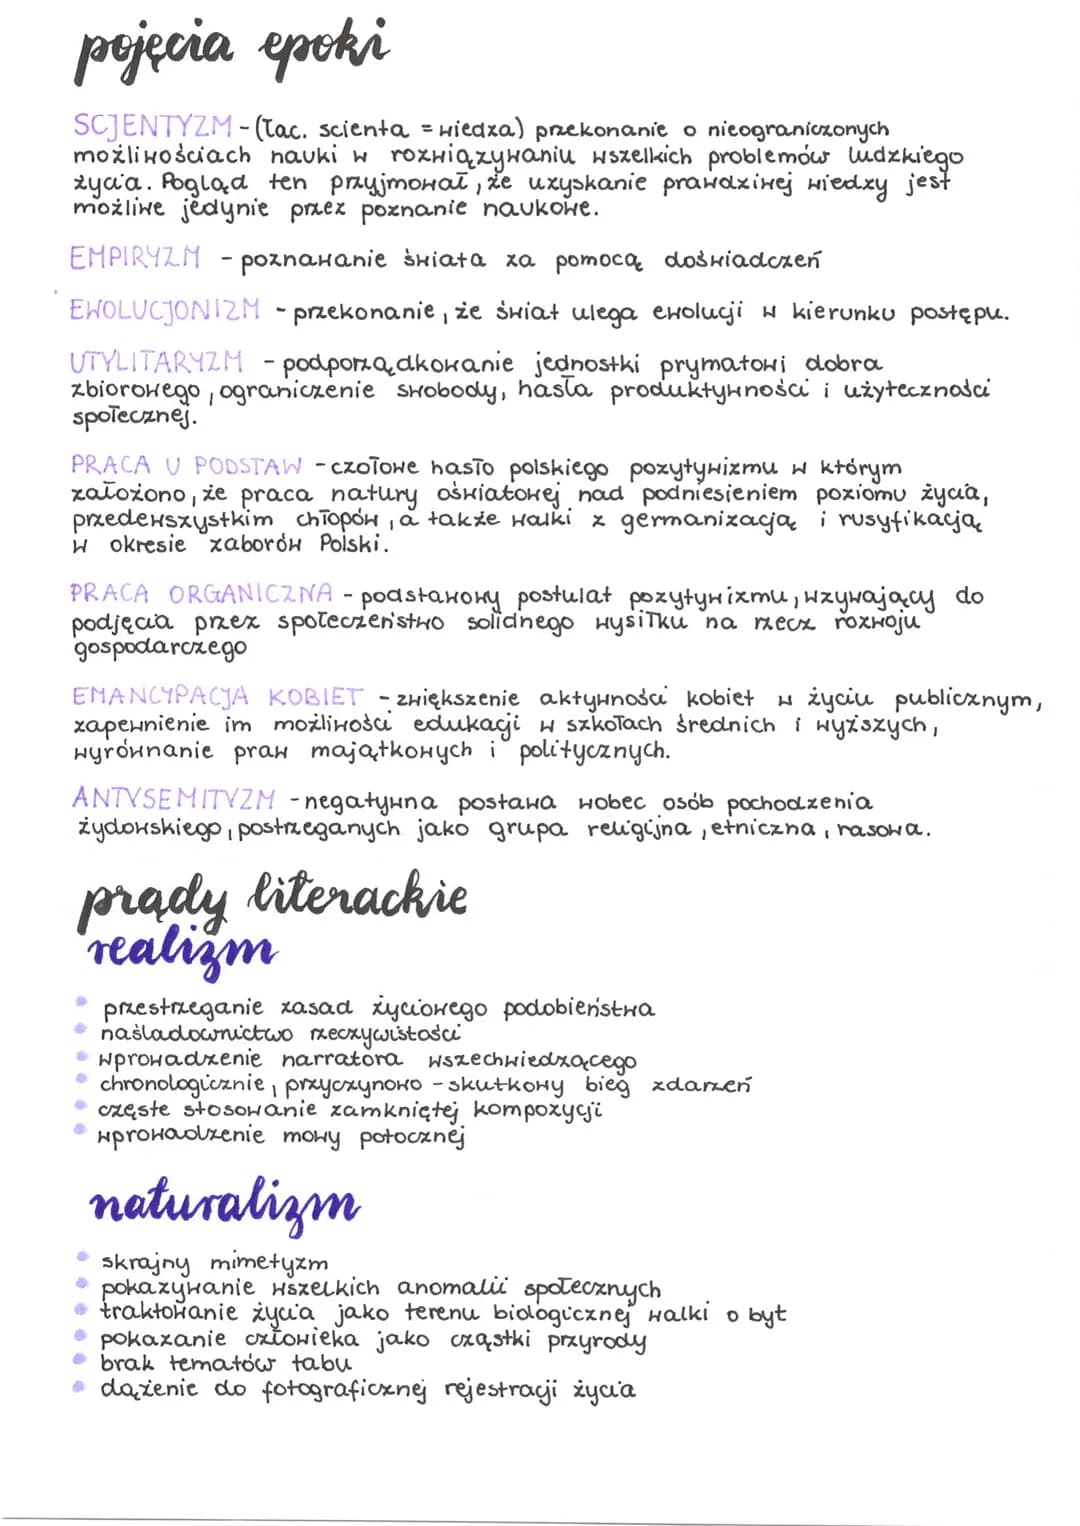 pojęcia epoki
SCJENTYZM - (łac. scienta = wiedza) przekonanie o nieograniczonych
możliwościach nauki w rozwiązywaniu wszelkich problemów ludzkiego
życia. Pogląd ten przyjmował, że uzyskanie prawdziwej wiedzy jest
możliwe jedynie przez poznanie naukowe.
EMPIRYZM - poznawanie świata za pomocą doświadczeń
EWOLUCJONIZM - przekonanie, że świat ulega ewolucji w kierunku postępu.
UTYLITARYZM - podporządkowanie jednostki prymatowi dobra
zbiorowego, ograniczenie swobody, hasła produktywności i użyteczności
społecznej.
PRACA U PODSTAW - czołowe hasło polskiego pozytywizmu w którym
założono, że praca natury oświatowej nad podniesieniem poziomu życia,
przedewszystkim chłopów, a także walki z germanizacją i rusyfikacją
w okresie zaborów Polski.
PRACA ORGANICZNA - podstawowy postulat pozytywizmu, wzywający do
podjęcia przez społeczeństwo solidnego wysiłku na rzecz rozwoju
gospodarczego
EMANCYPACJA KOBIET - zwiększenie aktywności kobiet w życiu publicznym,
zapewnienie im możliwości edukacji w szkołach średnich i wyższych,
wyrównanie praw majątkowych i politycznych.
ANTYSEMITYZM - negatywna postawa wobec osób pochodzenia
żydowskiego, postrzeganych jako grupa religijna, etniczna, rasowa.
prądy literackie
realizm
• przestrzeganie zasad życiowego podobieństwa
• naśladownictwo rzeczywistości
• wprowadzenie narratora wszechwiedzącego
• chronologicznie, przyczynowo - skutkowy bieg zdarzeń
• częste stosowanie zamkniętej kompozycji
• wprowadzenie mowy potocznej
naturalizm
• skrajny mimetyzm
• pokazywanie wszelkich anomalii społecznych
• traktowanie życia jako terenu biologicznej walki o byt
• pokazanie człowieka jako cząstki przyrody
• brak tematów tabu
• dążenie do fotograficznej rejestracji życia